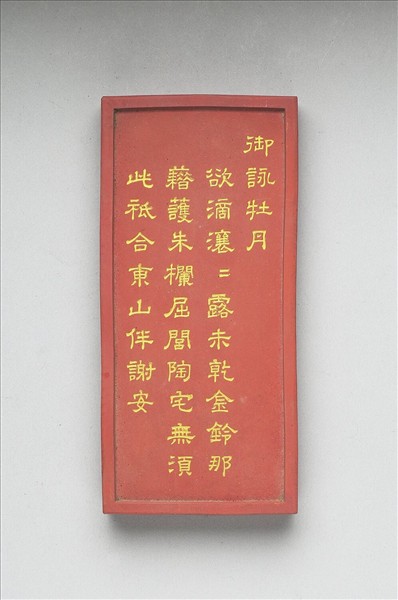 御詠牡丹
欲滴瀼〻露未乾金鈴那
藉護朱欄屈閭陶宅無須
此祗合東山伴謝安